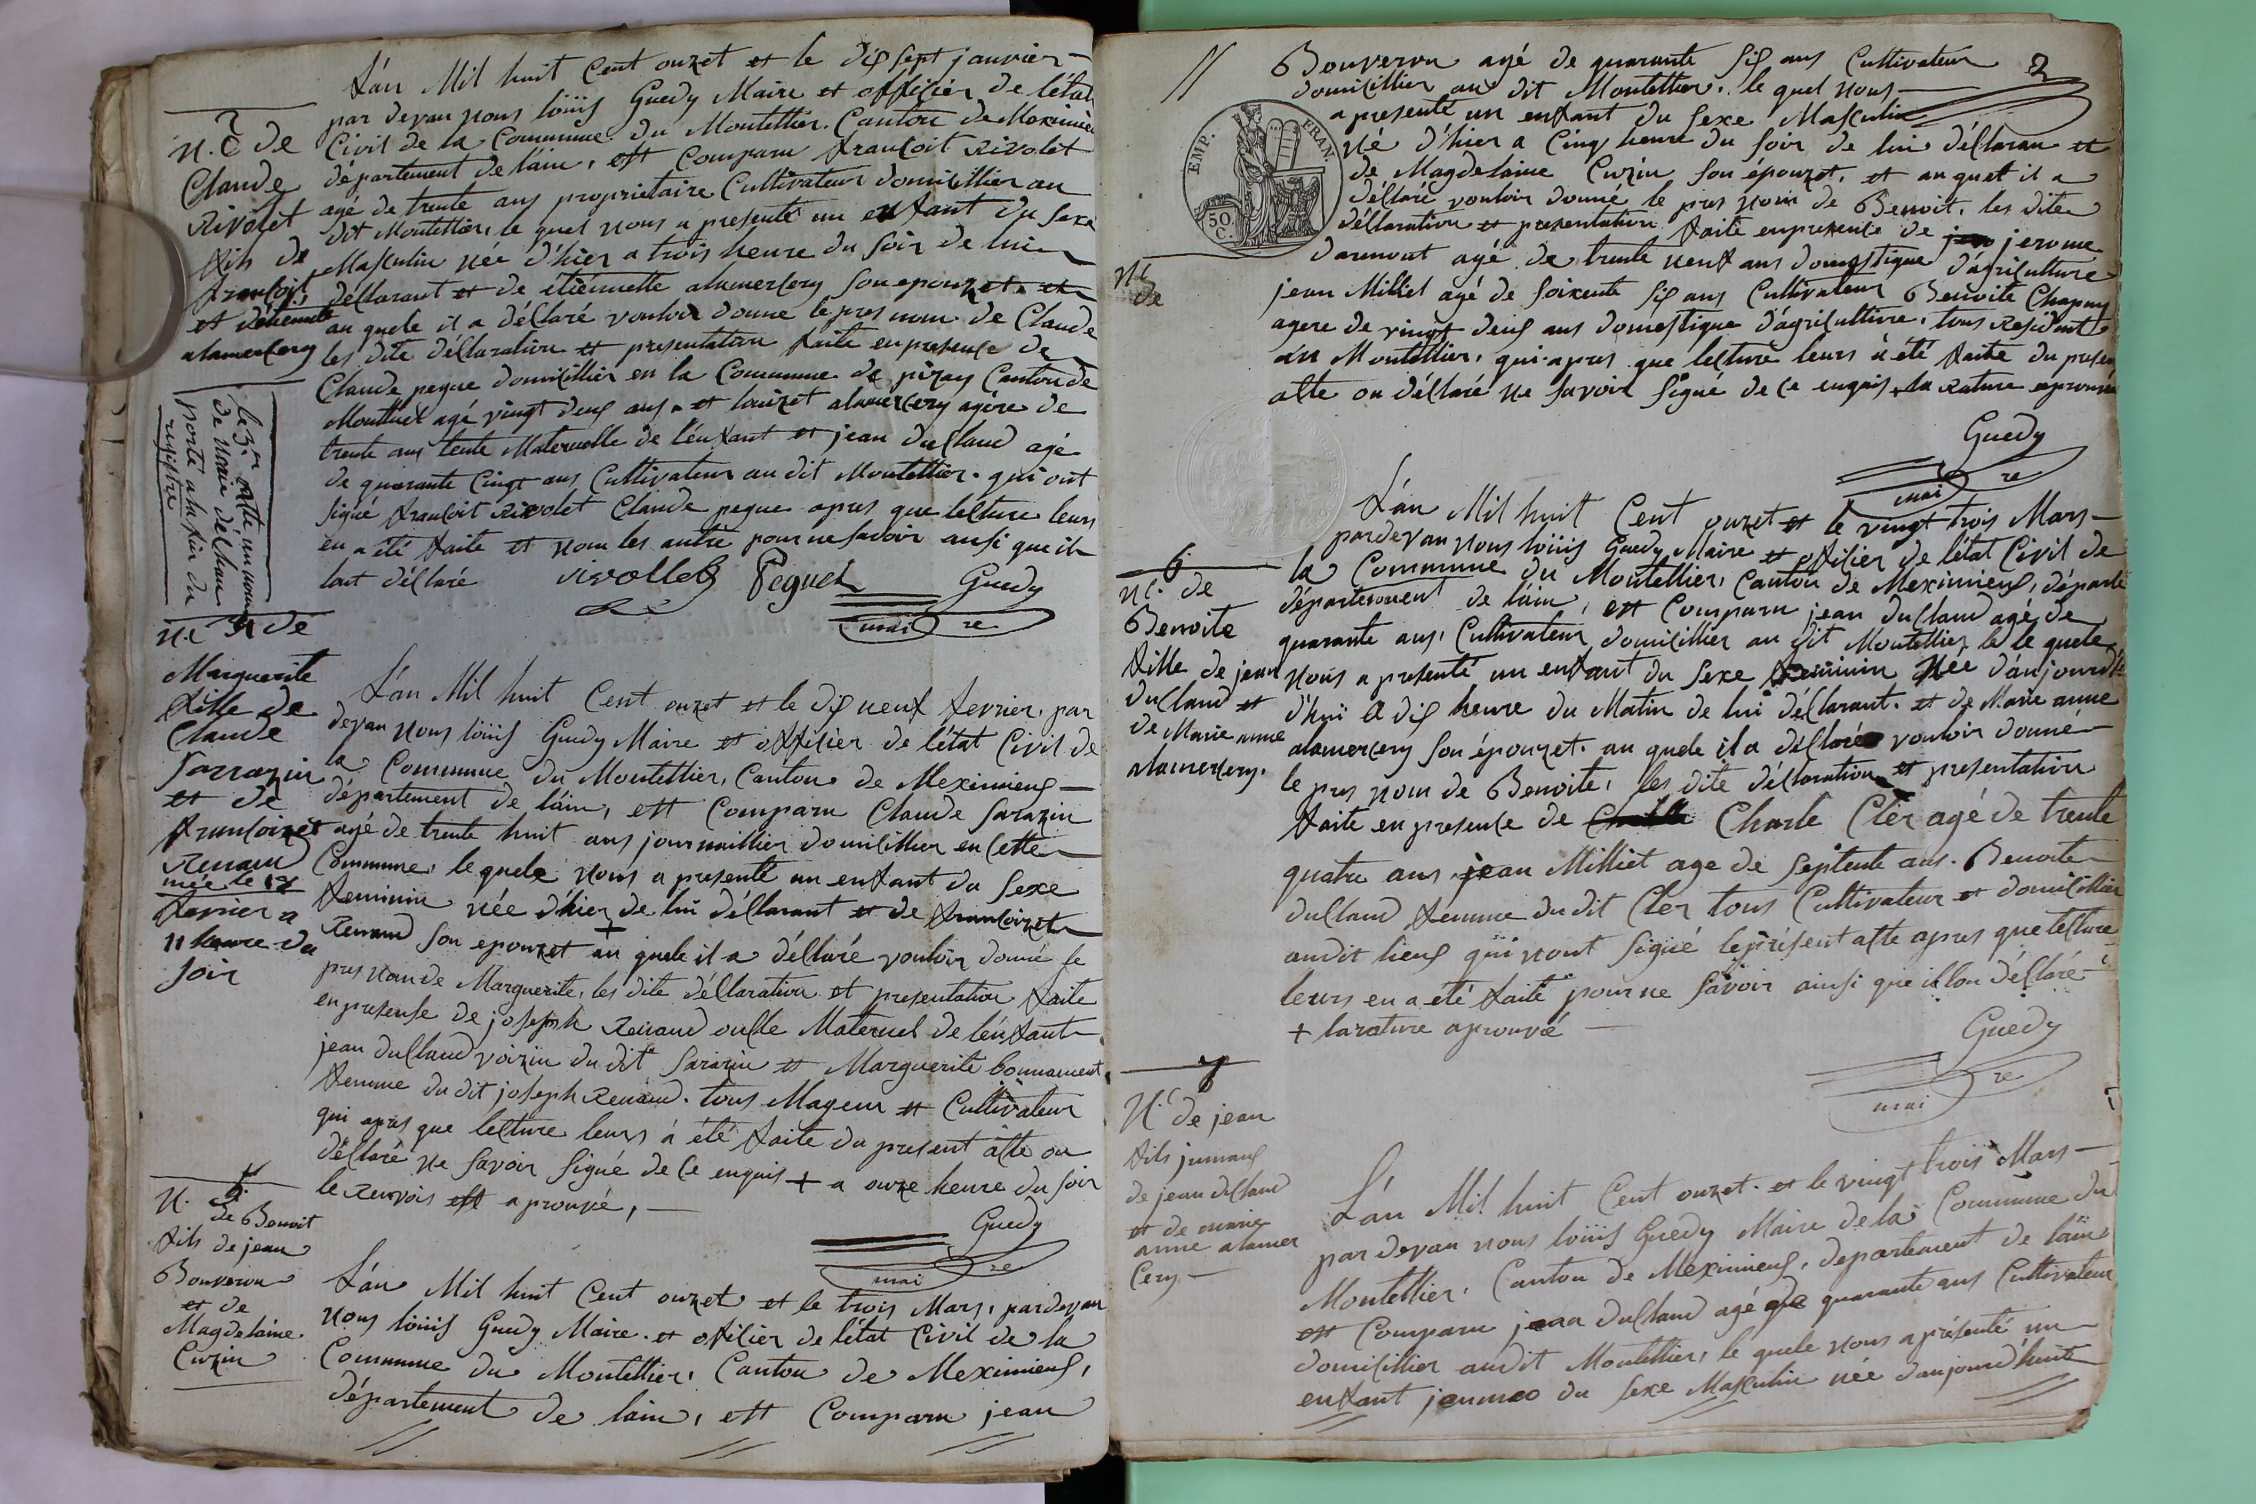 L'an Mil huit Cent onzet et le dix sept janvier
par devan nous loüis Guedy Maire et offisier de l'état
Civil de la Commune du Montellier. Canton de Meximieu
département de l'ain, est Comparu francoit Rivolet
agé de trente ans proprietaire Cultivateur domicillier au
dit Montellier, le quel nous a presenté un enfant du sexe
Masculin née d'hier a trois heure du soir de lui
déclarant et de étiennette alamercery son epouzet et
au quele il a déclaré vouloir donne le pres nom de Claude
les dite déclaration et presentation faite en presence de
Claude peque domicillier en la Commune de pizay Canton de
Montluel agé vingt deux ans et louizet alamercery agére de
trente ans tente Maternelle de l'enfant et jean duclaud agé
de quarante Cinqt ans Cultivateur au dit Montellier. qui ont
signé francoit Rivolet Claude peque apres que lecture leurs
en a été faite et nom les autre pour ne savoir ansi que il
lont déclaré
rivollet Peguet Guedy
mai re
n.e 2 de
Claude
Rivolet
fils de
francoit
et détiennette
alamercery
le 3.me acte un nom
de marie déchau
porté a la fin du
registre
N.e 4 de
Marguerite
fille de
Claude
Sarrazin
et de
francoizet
Renaud
née le 18
fevrier a
11 heure du
soir
L'an Mil huit Cent onzet et le dix neuf fevrier, par
devan nous loüis Guedy Maire et offisier de l'état Civil de
la Commune du Montellier, Canton de Meximieux
departement de l'ain, est Comparu Claude Sarazin
agé de trente huit ans journaillier domicillier en cette
Commune, le quele nous a presenté un enfant du sexe
feminin née d'hier de lui déclarant et de francoizet
Renaud son epouzet + au quele il a déclaré vouloir donné le
pres nom de Marguerite, les dite déclaration et presentation faite
en presense de joseph Renaud oncle Maternel de l'enfant
jean duclaud voizin du dit Sarazin et Marguerite bonnament
femme du dit joseph Renaud. tous Mageur et Cultivateur
qui apres que lecture leurs a été faite du present acte on
déclaré ne savoir signé de ce enquis + a onze heure du soir
le renvois est aprouvé,
Guedy
mai re
N. 5.
de Benoit
fils de jean
Bouveron
et de
Magdelaine
Cuzin
L'an Mil huit Cent onzet et le trois Mars, pardevan
nous loüis Guedy Maire. et ofisier de l'état Civil de la
Commune du Montellier, Canton de Meximieux,
département de lain, est Comparu jean
2
Bouveron agé de quarante six ans Cultivateur
domicillier au dit Montellier. le quel nous
a presenté un enfant du sexe Masculin
né d'hier a Cinq heure du soir de lui déclaran et
de Magdelaine Cuzin son épouzet, et au quel il a
déclaré vouloir donné le pres nom de Benoit, les dite
déclaration et presentation faite enpresence de jerome
daremont agé de trente neuf ans domestique d'agriculture
jean Milliet agé de soixente six ans Cultivateur Benoite Chapuy
agere de vingt deux ans domestique d'agriculture, tous residant
au Montellier, qui apres que lecture leurs à été faite du presen
acte on déclaré ne savoir signé de ce enquis, la rature aprouvé
EMP. FRAN.
50
C.
N.e
de
Guedy
mai re
6
N.e de
Benoite
fille de jean
duclaud et
de Marie anne
alamercery.
L'an Mil huit Cent onzet et le vingt trois Mars
pardevan nous loüis Guedy Maire et ofisier de l'état Civil de
la Commune du Montellier, Canton de Meximieux, départe
département de l'ain, est Comparu jean duclaud agé de
quarante ans, Cultivateur domicillier au dit Montellier le le quele
nous a presenté un enfant du sexe feminin née d'aujourd
d'hui a dix heure du Matin de lui déclarant. et de Marie anne
alamercery son épouzet. au quele il a déclaré vouloir donné
le pres nom de Benoite, les dite déclaration et presentation
faite en presence de Charle Cler agé de trente
quatre ans jean Milliet age de septente ans. Benoite
duclaud femme du dit Cler tous Cultivateur et domicillier
audit lieux qui nont signé le présent acte apres que lecture
leurs en a été faite pour ne savoir ainsi que il lon déclaré
+ la rature aprouvé
Guedy
mai re
7
N.e de jean
fils jumaux
de jean duclaud
et de marie
anne alamer
cery
L'an Mil huit Cent onzet. et le vingt trois Mars
par devan nous loüis Guedy Maire de la Commune du
Montellier. Canton de Meximieux, departement de l'ain
est Comparu jean duclaud agé de quarante ans Cultivateur
domicillier audit Montellier, le quele nous a présenté un
enfant jumeo du sexe Masculin née d'aujourd'hui